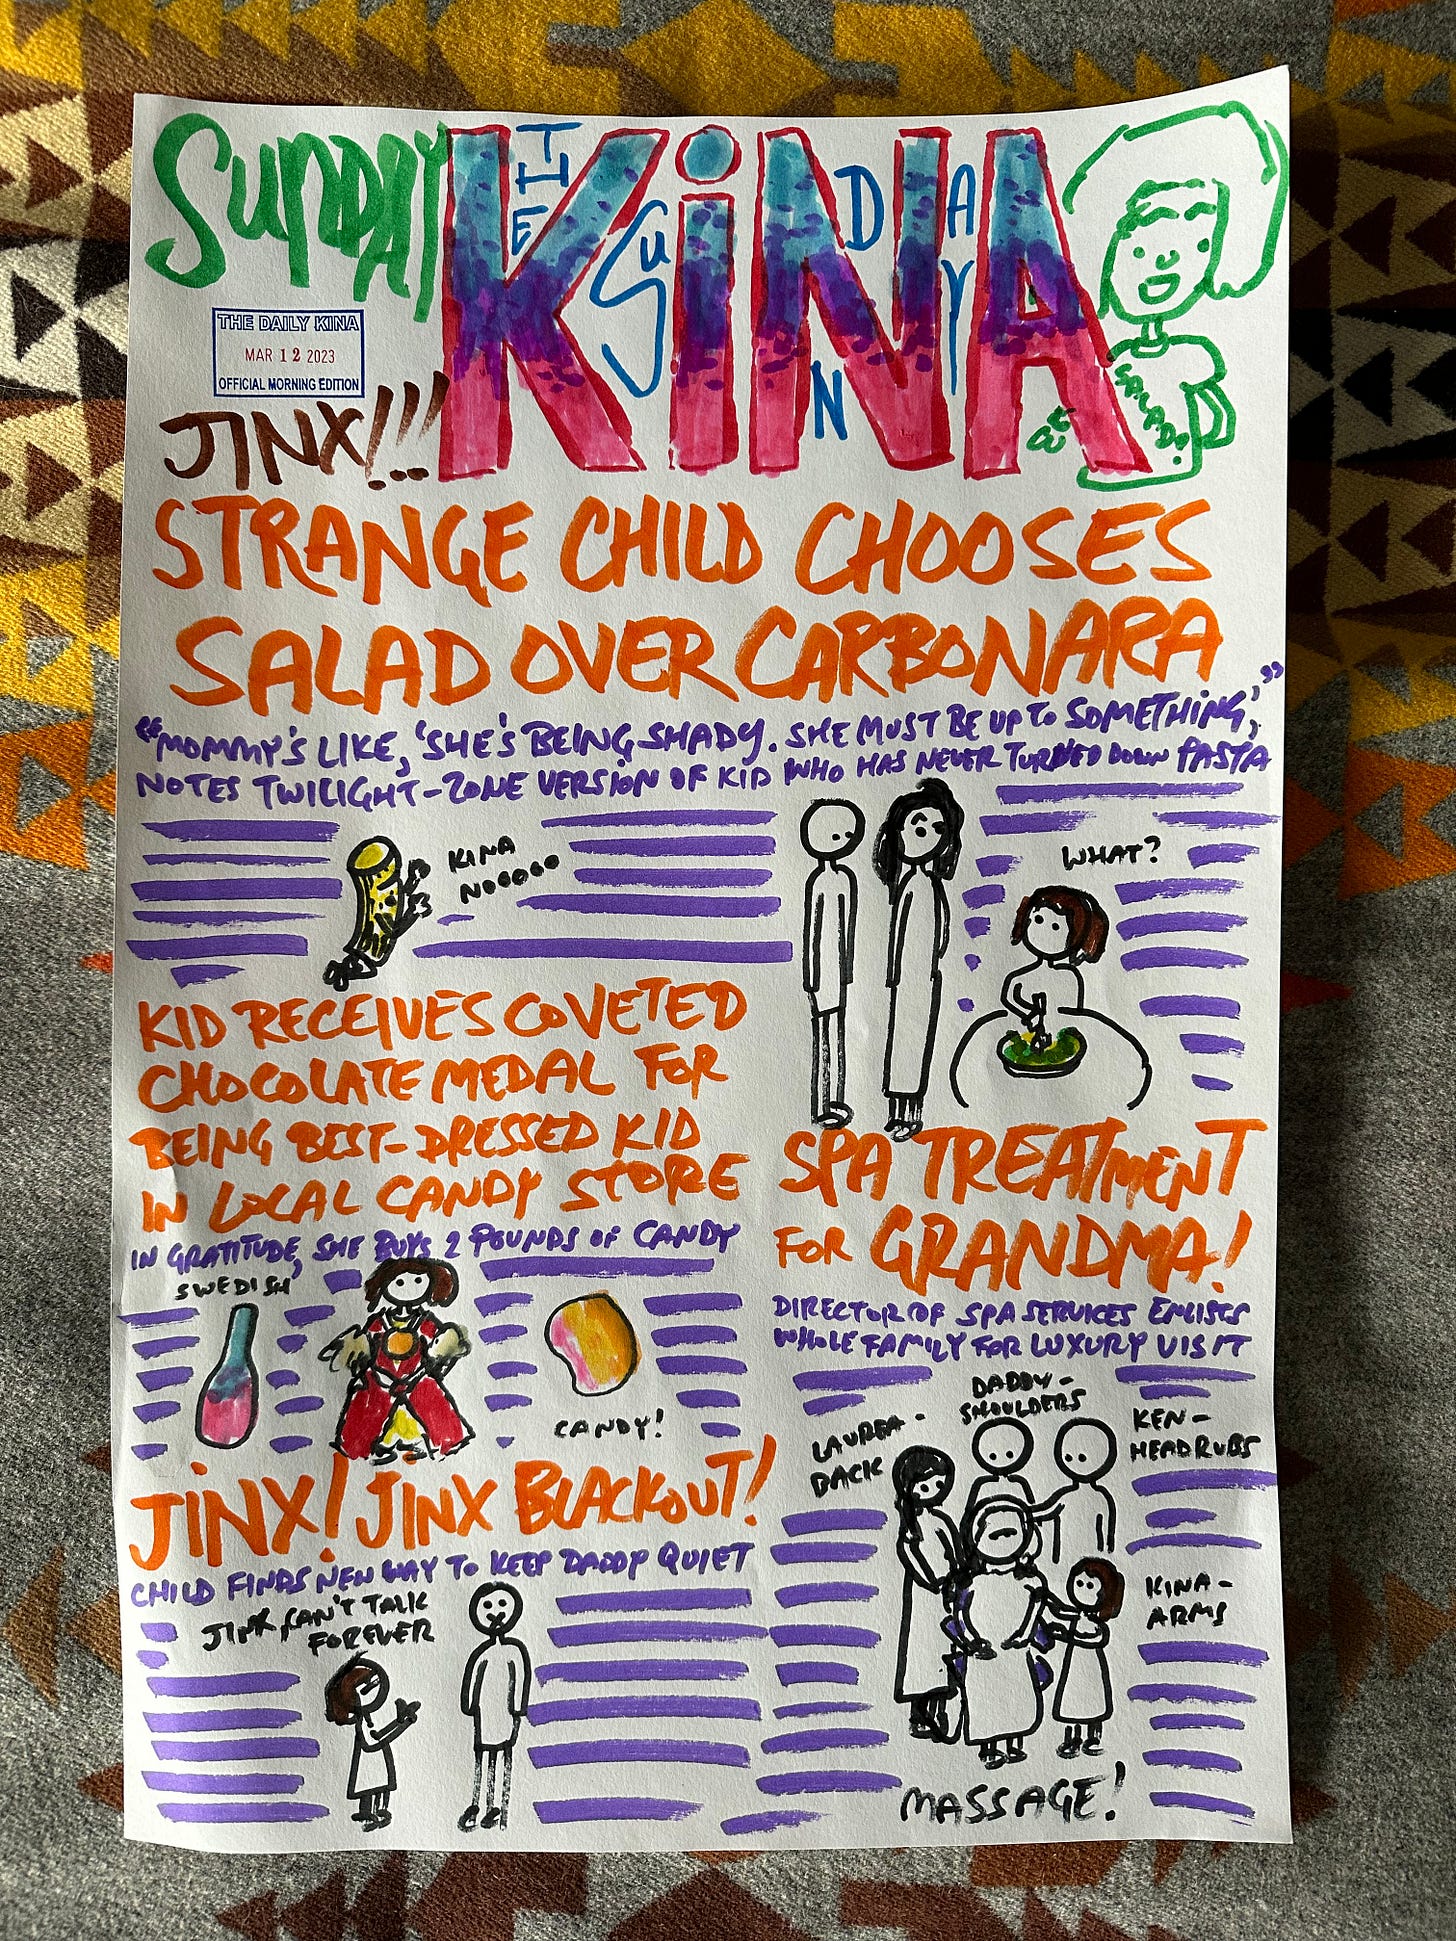 SUNDAY
THE SUNDAY
KiNA
THE DAILY KINA
MAR 12 2023
OFFICIAL MORNING EDITION
JINX!!!
SALAD!
STRANGE CHILD CHOOSES
SALAD OVER CARBONARA
"MOMMY'S LIKE, 'SHE'S BEING SHADY. SHE MUST BE UP TO SOMETHING,'"
NOTES TWILIGHT-ZONE VERSION OF KID WHO HAS NEVER TURNED DOWN PASTA
KINA
NOOOOO
WHAT?
KID RECEIVES COVETED
CHOCOLATE MEDAL FOR
BEING BEST-DRESSED KID
IN LOCAL CANDY STORE
IN GRATITUDE, SHE BUYS 2 POUNDS OF CANDY
SWEDISH
CANDY!
SPA TREATMENT
FOR GRANDMA!
DIRECTOR OF SPA SERVICES ENLISTS
WHOLE FAMILY FOR LUXURY VISIT
LAUREA-
BACK
DADDY-
SHOULDERS
KEN-
HEADRUBS
KINA-
ARMS
MASSAGE!
JINX! JINX BLACKOUT!
CHILD FINDS NEW WAY TO KEEP DADDY QUIET
JINX, CAN'T TALK
FOREVER